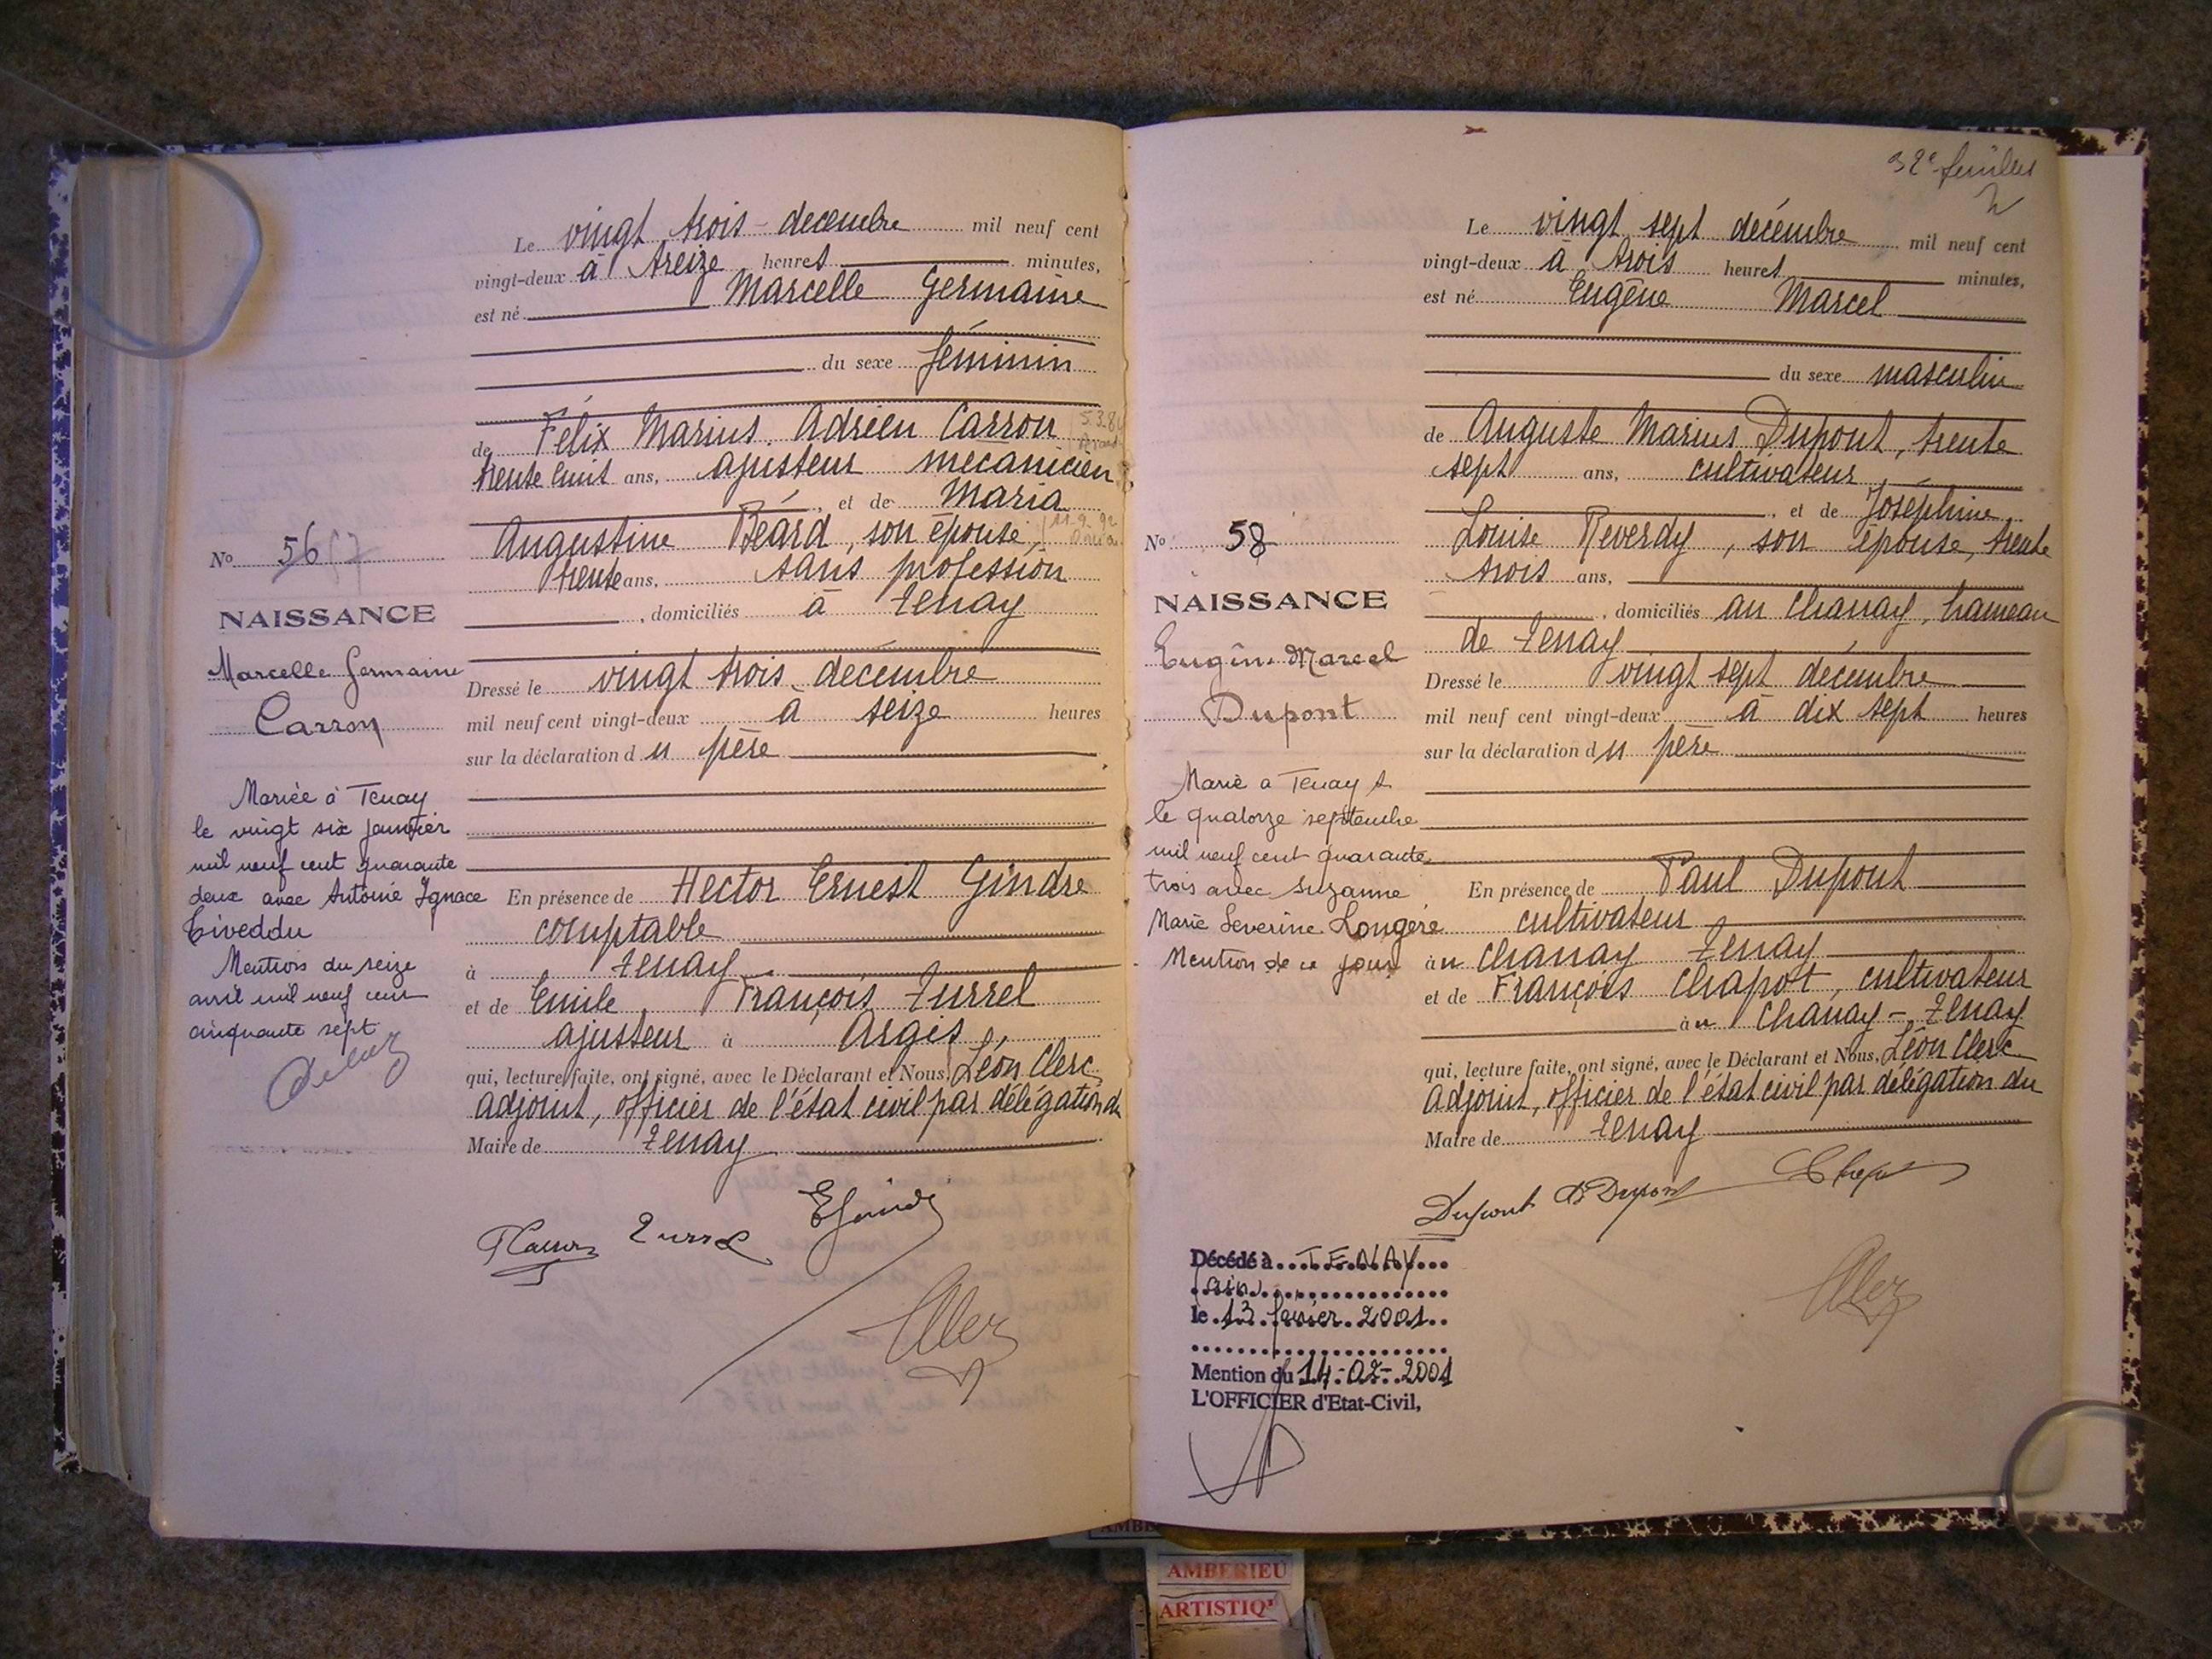 Le vingt trois decembre mil neuf cent
vingt-deux à treize heures minutes,
est né Marcelle Germaine
du sexe féminin
de Félix Marius Adrien Carron
trente huit ans, ajusteur mécanicien
, et de Maria
Augustine Béard, son épouse,
trente ans, sans profession
, domiciliés à Tenay
Dressé le vingt trois décembre
mil neuf cent vingt-deux à seize heures
sur la déclaration du père
En présence de Hector Ernest Gindre
comptable
à Tenay
et de Emile François Turrel
ajusteur à Argis
qui, lecture faite, ont signé, avec le Déclarant et Nous, Léon Clerc
adjoint, officier de l'état civil par délégation du
Maire de Tenay
No 56 57
NAISSANCE
Marcelle Germaine
Carron
Mariée à Tenay
le vingt six janvier
mil neuf cent quarante
deux avec Antoine Ignace
Civeddu
Mention du seize
avril mil neuf cent
cinquante sept
32e feuillet
Le vingt sept décembre mil neuf cent
vingt-deux à trois heures minutes,
est né Eugène Marcel
du sexe masculin
de Auguste Marius Dupont, trente
sept ans, cultivateur
, et de Joséphine
Louise Reverdy, son épouse, trente
trois ans,
, domiciliés au Chanay, hameau
de Tenay
Dressé le vingt sept décembre
mil neuf cent vingt-deux à dix sept heures
sur la déclaration du père
En présence de Paul Dupont
cultivateur
àu Chanay Tenay
et de François Chapot, cultivateur
àu Chanay - Tenay
qui, lecture faite, ont signé, avec le Déclarant et Nous, Léon Clerc
adjoint, officier de l'état civil par délégation du
Maire de Tenay
Dupont Dupont
No 58
NAISSANCE
Eugène Marcel
Dupont
Marié à Tenay
le quatorze septembre
mil neuf cent quarante
trois avec Suzanne
Marie Severine Longère
Mention de ce jour
Décédé à TENAY
(Ain)
le 13 février 2001
Mention du 14-02-2001
L'OFFICIER d'Etat-Civil,
AMBERIEU
ARTISTIQ